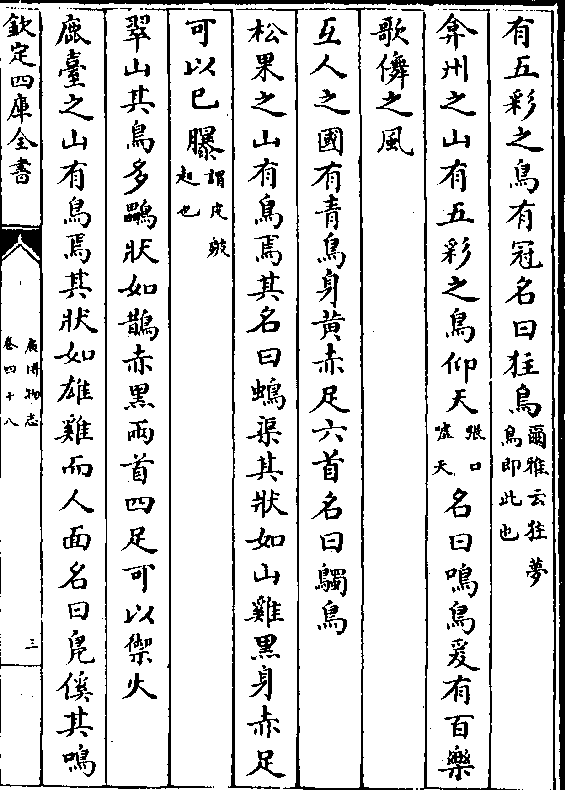 有五彩之鳥有冠名曰狂鳥爾雅云狂夢鳥即此也
弇州之山有五彩之鳥仰天張口嘘天名曰鳴鳥爰有百樂
歌儛之風
互人之國有青鳥身黄赤足六首名曰鸀鳥
松果之山有鳥焉其名曰䳋渠其狀如山雞黑身赤足
可以已㿺謂皮皵起也
翠山其鳥多鸓狀如鵲赤黑兩首四足可以禦火
鹿臺之山有鳥焉其狀如雄雞而人面名曰鳧徯其鳴
欽定四庫全書
廣博物志
卷四十八
三